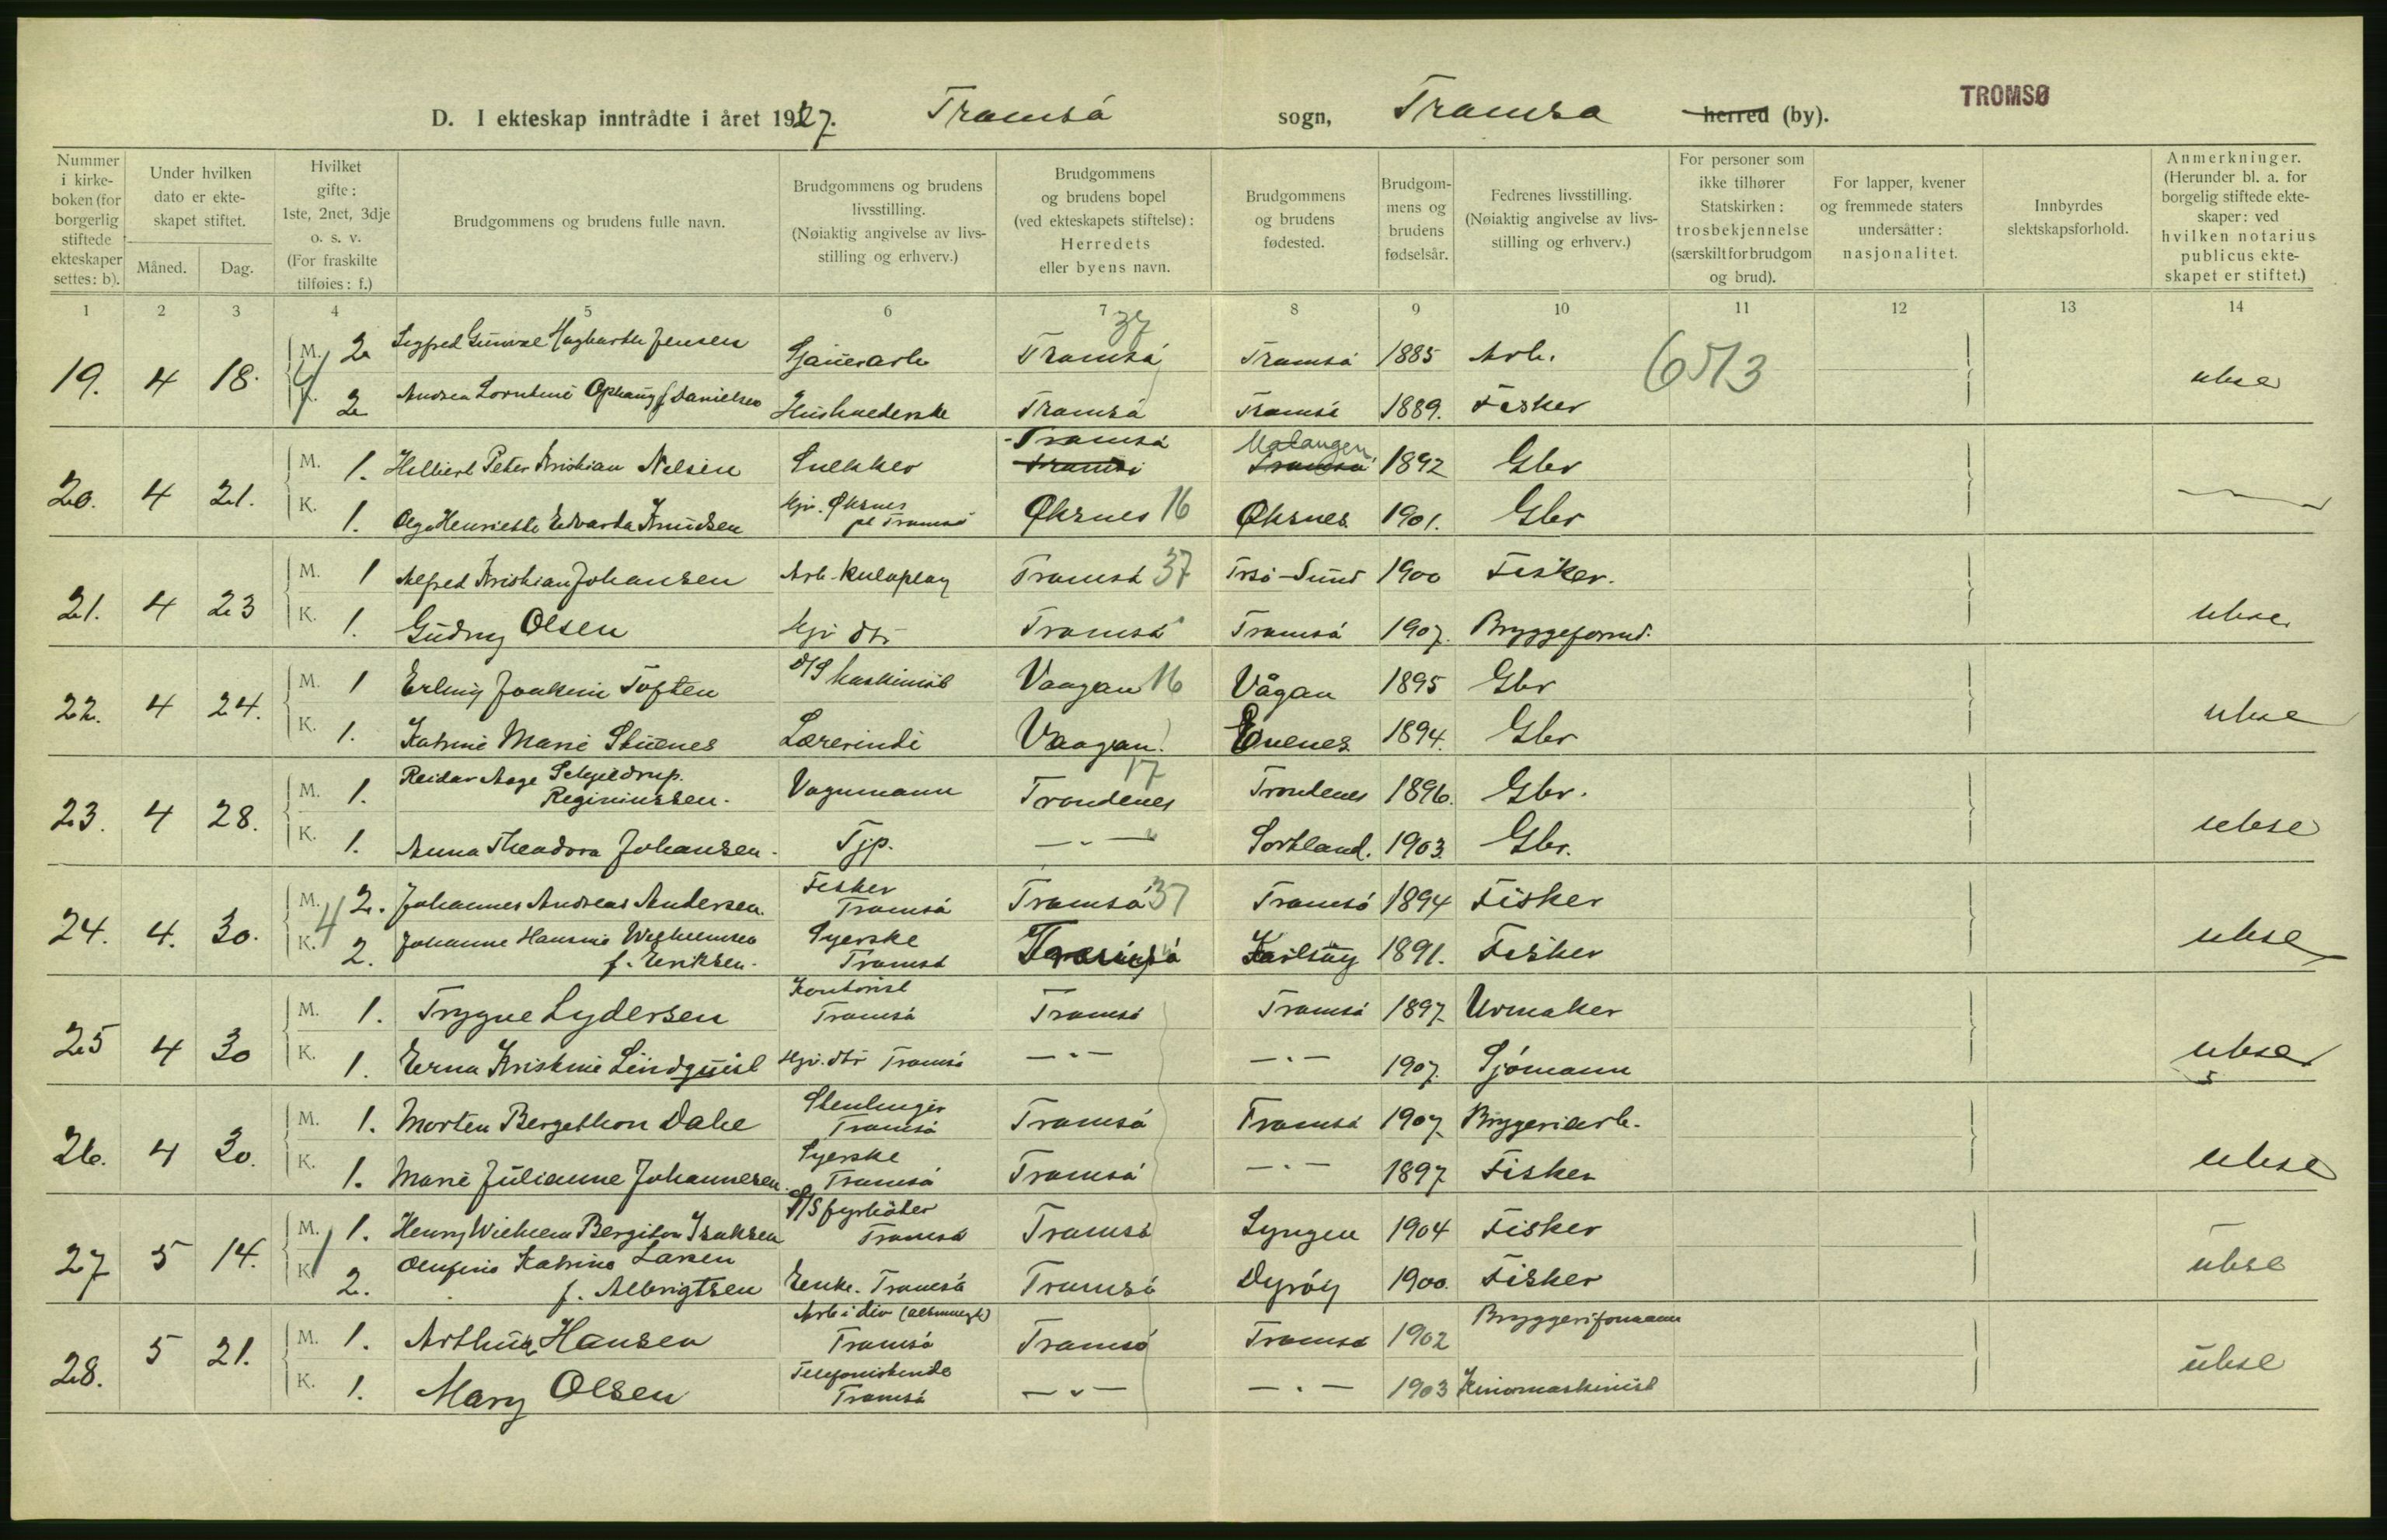 TROMSØ
D. I ekteskap inntrådte i året 1927. Tromsø sogn, Tromsø herred (by).
Nummer i kirkeboken (for borgerlig stiftede ekteskaper settes: b).
Under hvilken dato er ekteskapet stiftet.
Måned.
Dag.
Hvilket gifte: 1ste, 2net, 3dje o. s. v. (For fraskilte tilføies: f.)
Brudgommens og brudens fulle navn.
Brudgommens og brudens livsstilling. (Nøiaktig angivelse av livsstilling og erhverv.)
Brudgommens og brudens bopel (ved ekteskapets stiftelse): Herredets eller byens navn.
Brudgommens og brudens fødested.
Brudgommens og brudens fødselsår.
Fedrenes livsstilling. (Nøiaktig angivelse av livsstilling og erhverv.)
For personer som ikke tilhører Statskirken: trosbekjennelse (særskilt for brudgom og brud).
For lapper, kvener og fremmede staters undersåtter: nasjonalitet.
Innbyrdes slektskapsforhold.
Anmerkninger. (Herunder bl. a. for borgelig stiftede ekteskaper: ved hvilken notarius publicus ekteskapet er stiftet.)
1 2 3 4 5 6 7 8 9 10 11 12 13 14
37
19. 4 18. M. 2 Jensen Tromsø Tromsø 1885 Arb. 6513
K. 2 Andrea Ophaug f. Danielsen Husholderske Tromsø Tromsø 1889. Fisker
20. 4 21. M. 1. Peter Kristian Nelsen Snekker Tromsø Tromsø Malangen Tromsø 1892 Gbr
K. 1. Olga Henriette Edvarda Knudsen Hjv. Øksnes pt Tromsø Øksnes 16 Øksnes 1901. Gbr
21. 4 23 M. 1 Alfred Kristian Johansen Tromsø 37 Trsø-Sund 1900 Fisker.
K. 1. Gudny Olsen Hjv dtr Tromsø Tromsø 1907. Bryggeformd.
22. 4 24. M. 1 Erling Joakim Toften D/S maskinist Vaagan 16 Vågan 1895 Gbr
K. 1. Katrine Marie Skuenes Lærerinde Vaagan Evenes 1894. Gbr
17
23. 4 28. M. 1. Reidar Aage Schjeldrup Reginiussen. Vognmann Trondenes Trondenes 1896. Gbr.
K. 1. Anna Theodora Johansen. Tjp. — " — Sortland. 1903. Gbr.
24. 4. 30. M. 2. Johannes Andreas Andersen. Fisker Tromsø Tromsø 37 Tromsø 1894 Fisker
K. 2. Johanne Hansine Wilhelmsen f. Eriksen. Syerske Tromsø Tromsø Karlsøy 1891. Fisker
25 4 30 M. 1. Trygve Lydersen Kontorist Tromsø Tromsø Tromsø 1897 Urmaker
K. 1. Erna Kristine Lindquist Hjv. dtr Tromsø — " — — " — 1907. Sjømann
26. 4 30. M. 1. Morten Bergethon Dahl Stenhugger Tromsø Tromsø Tromsø 1907 Bryggeriarb.
K. 1. Marie Julianne Johannesen. Syerske Tromsø Tromsø — " — 1897 Fisker
27 5 14. M. 1. Henry Wilhelm Bergiton Isaksen D/S fyrbøter Tromsø Tromsø Lyngen 1904 Fisker
K. 2. Olufine Katrine Larsen f. Albrigtsen Enke. Tromsø Tromsø Dyrøy 1900. Fisker
28. 5 21. M. 1. Arthur Hansen Tromsø Tromsø Tromsø 1902 Bryggeriformann
K. 1. Mary Olsen Telefonistinde Tromsø — " — — " — 1903 Kinomaskinist